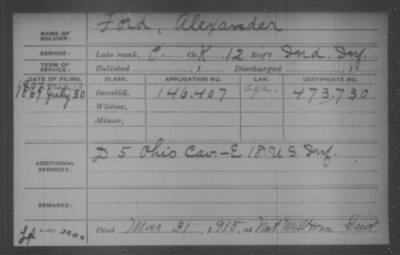 NAME OF SOLDIER: Ford, Alexander
SERVICE: Late rank, P. Co. K, 12 Reg't Ind. Inf.
TERM OF SERVICE: Enlisted , 1 Discharged , 1
DATE OF FILING. CLASS. APPLICATION NO. LAW. CERTIFICATE NO.
1867 July 30 Invalid, 146.407 473,730
Widow,
Minor,
ADDITIONAL SERVICES: D 5 Ohio Cav.—E 18 U S Inf.
REMARKS:
Died Mar 31, 1915, at Nat Mil Home Ind